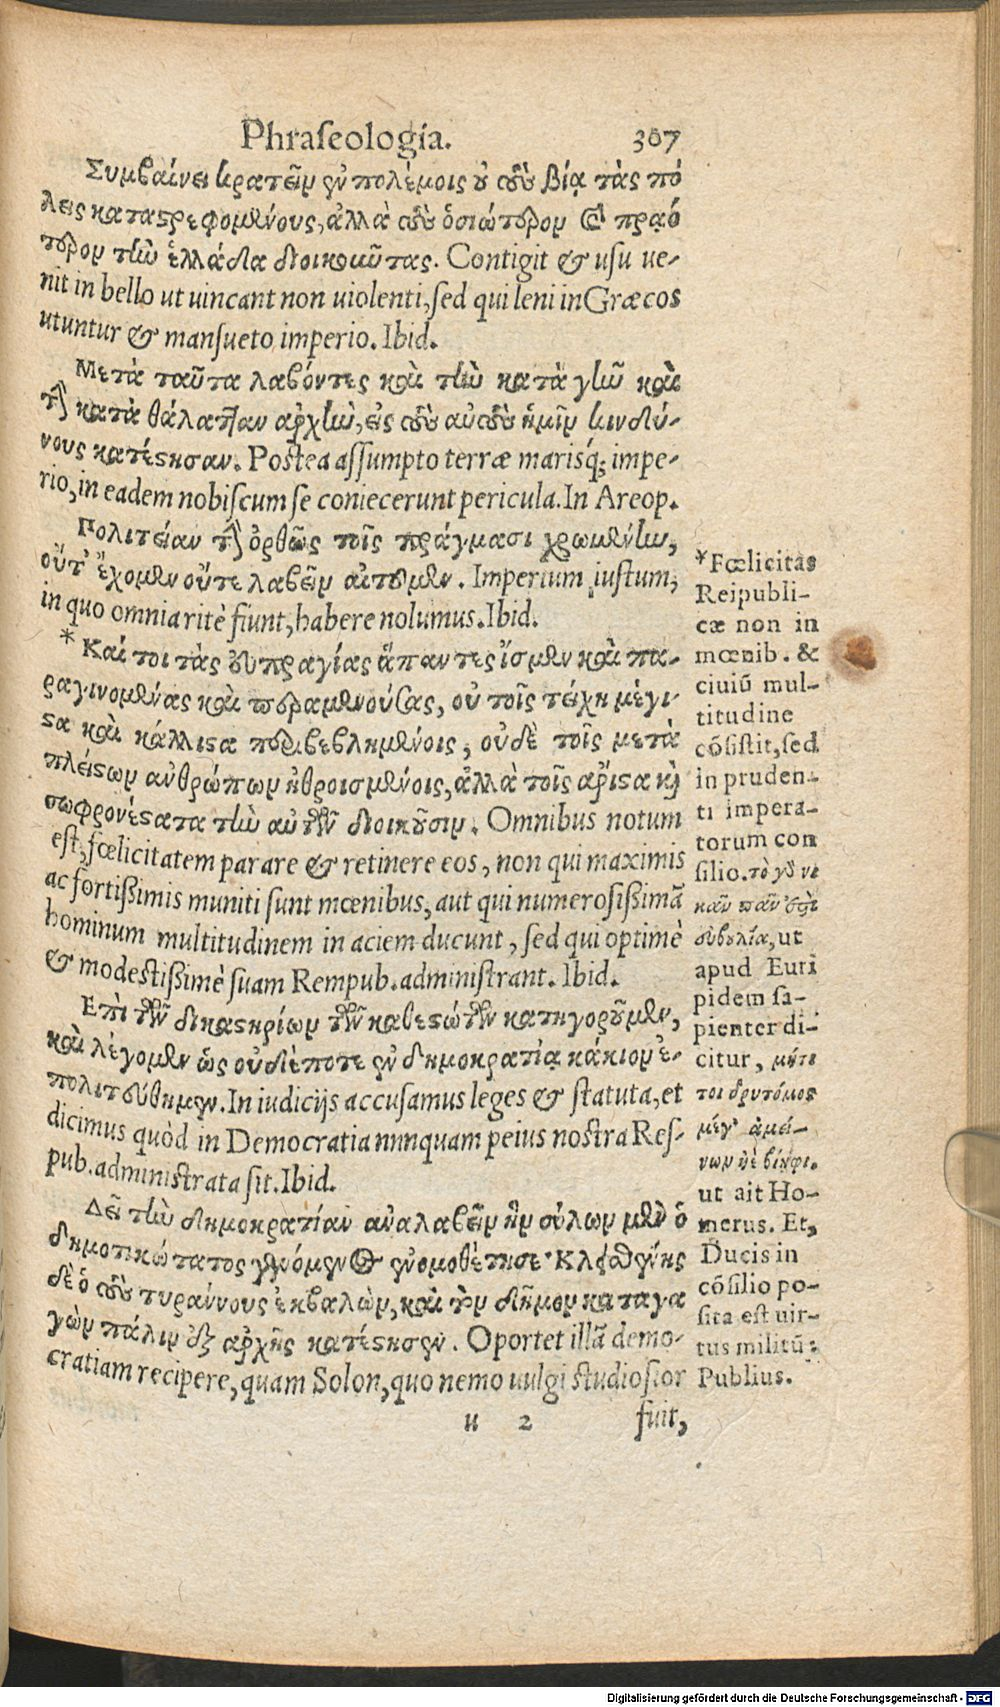 Phraseologia. 307
Συμβαίνει κρατεῖν ἐν πολέμοις οὐ τοὺς βίᾳ τὰς πό
λεις καταστρεφομένους, ἀλλὰ τοὺς ὁσιώτερον καὶ πραό
τερον τὴν ἑλλάδα διοικοῦντας. Contigit & usu ue-
nit in bello ut uincant non uiolenti, sed qui leni in Græcos
utuntur & mansueto imperio. Ibid.
Μετὰ ταῦτα λαβόντες καὶ τὴν κατὰ γῆν καὶ
τὴν κατὰ θάλατταν ἀρχὴν, εἰς τοὺς αὐτοὺς ἡμῖν κινδύ-
νους κατέστησαν. Postea assumpto terræ marisq́; impe-
rio, in eadem nobiscum se coniecerunt pericula. In Areop.
Πολιτείαν τὴν ὀρθῶς τοῖς πράγμασι χρωμένην,
οὔτ' ἔχομεν οὔτε λαβεῖν αἰτοῦμεν. Imperium iustum,
in quo omnia ritè fiunt, habere nolumus. Ibid.
* Καί τοι τὰς εὐπραγίας ἅπαντες ἴσμεν καὶ πα-
ραγινομένας καὶ παραμενούσας, οὐ τοῖς τείχη μέγι-
στα καὶ κάλλιστα περιβεβλημένοις, οὐδὲ τοῖς μετὰ
πλείστων ἀνθρώπων ἠθροισμένοις, ἀλλὰ τοῖς ἄριστα καὶ
σωφρονέστατα τὴν αὑτῶν διοικοῦσιν. Omnibus notum
est, fœlicitatem parare & retinere eos, non qui maximis
ac fortißimis muniti sunt mœnibus, aut qui numerosißimā
hominum multitudinem in aciem ducunt, sed qui optimè
& modestißimè suam Rempub. administrant. Ibid.
Ἐπὶ τῶν δικαστηρίων τῶν καθεστώτων κατηγοροῦμεν,
καὶ λέγομεν ὡς οὐδέποτε ἐν δημοκρατίᾳ κάκιον ἐ-
πολιτεύθημεν. In iudicijs accusamus leges & statuta, et
dicimus quòd in Democratia nunquam peius nostra Res-
pub. administrata sit. Ibid.
Δεῖ τὴν δημοκρατίαν ἀναλαβεῖν ἣν σόλων μὲν ὁ
δημοτικώτατος γενόμενος ἐνομοθέτησε· Κλεισθένης
δὲ ὁ τοὺς τυράννους ἐκβαλὼν, καὶ τὸν δῆμον καταγα
γὼν πάλιν ἐξ ἀρχῆς κατέστησεν. Oportet illā demo-
cratiam recipere, quam Solon, quo nemo uulgi studiosior
u 2 fuit,
*Fœlicitas
Reipubli-
cæ non in
mœnib. &
ciuiū mul-
titudine
cōsistit, sed
in pruden-
ti impera-
torum con
silio. τὸ γὰρ νι
κᾶν πᾶν ἐστὶ
εὐβουλία, ut
apud Euri
pidem sa-
pienter di-
citur, μήτι
τοι δρυτόμος
μέγ' ἀμεί-
νων ἠὲ βίηφι.
ut ait Ho-
merus. Et,
Ducis in
cōsilio po-
sita est uir-
tus militū:
Publius.
Digitalisierung gefördert durch die Deutsche Forschungsgemeinschaft - DFG